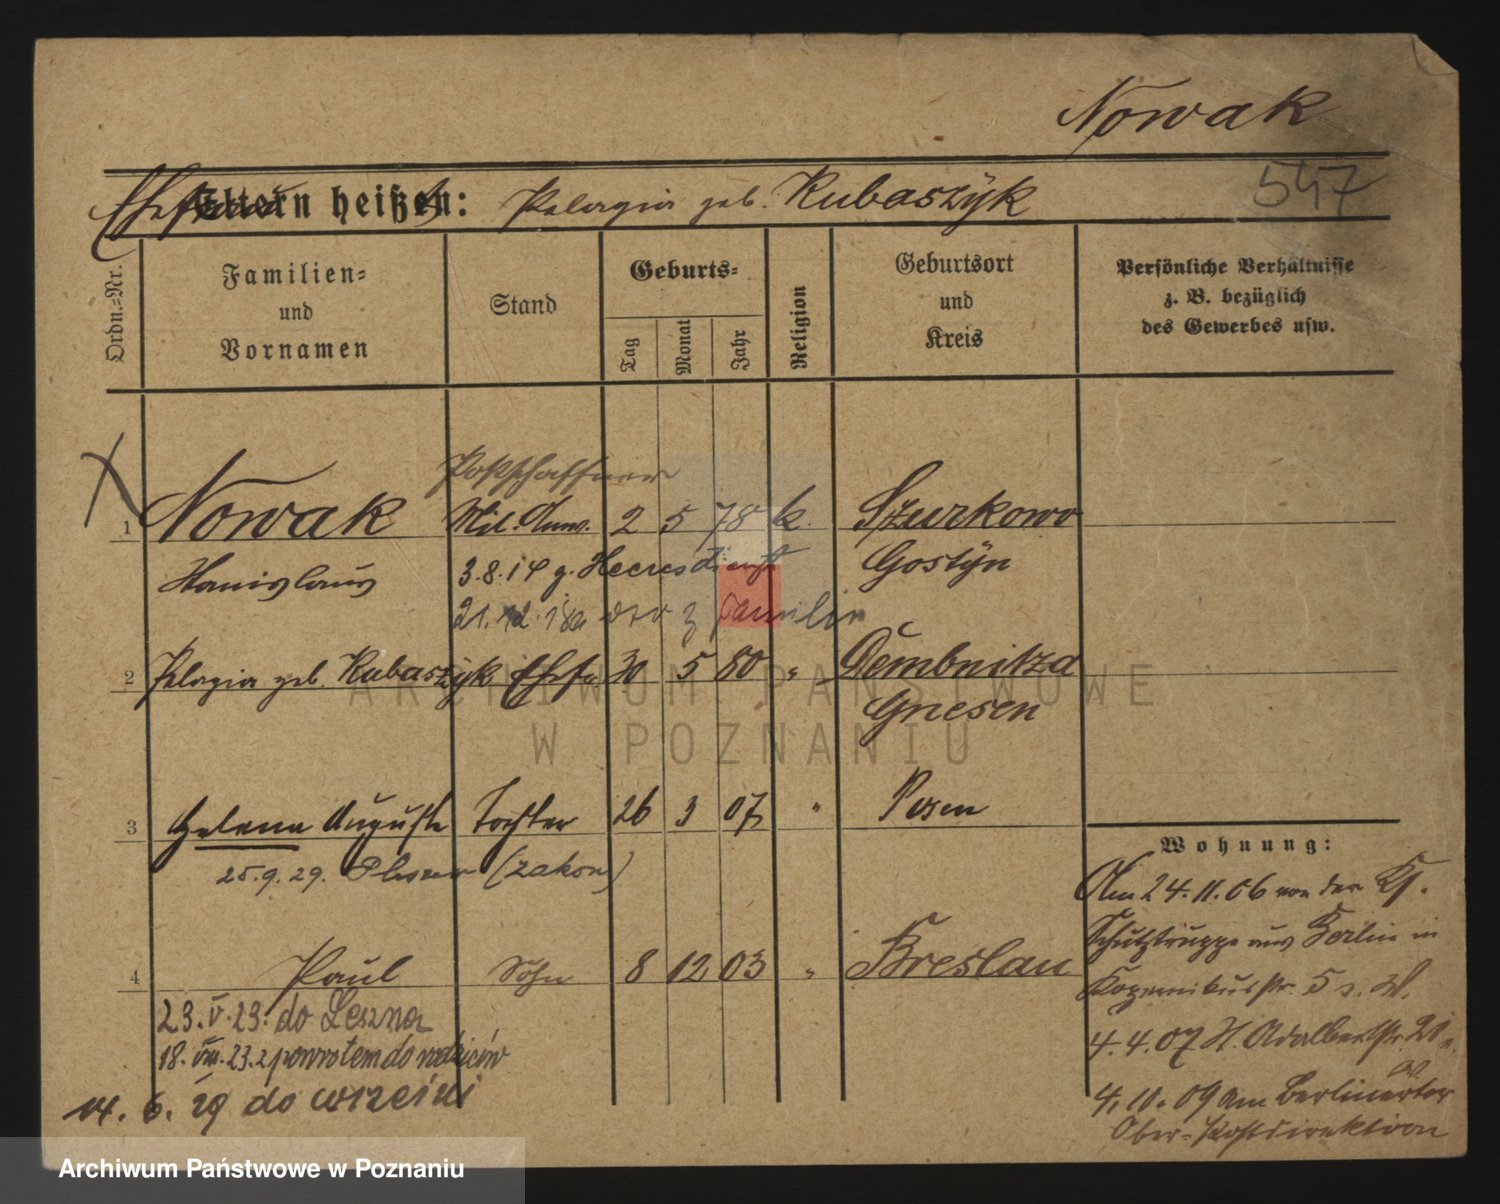 Nowak
547
Ehefrau
Eltern heißen: Pelagia geb. Kubaszÿk
Ordn.=Nr.
Familien=
und
Vornamen
Stand
Geburts=
Tag
Monat
Jahr
Religion
Geburtsort
und
Kreis
Persönliche Verhältnisse
z. B. bezüglich
des Gewerbes usw.
Postschaffner
1 Nowak Mil. Anw. 2 5 78 k. Szurkowo
Stanislaus 3.8.14 z. Heeresdienst Gostÿn
21.12.18 z Familie
2 Pelagia geb. Kubaszÿk Ehefr 30 5 80 " Dembnitza
Gnesen
3 Helena Auguste Tochter 26 3 07 " Posen
25.9.29. (zakon)
4 Paul Sohn 8 12 03 " Breslau
23.V.23. do Leszna
18.VIII.23. z powrotem do rodziców
14. 6. 29 do Wrześni
Wohnung:
Am 24.11.06 von der Ks.
Schutztruppe aus Berlin in
Kopernikusstr. 5
4.4.07 H. Adalbertstr. 21
4.10.09 Am Berlinertor
Ober-Postdirektion
ARCHIWUM PAŃSTWOWE
W POZNANIU
Archiwum Państwowe w Poznaniu